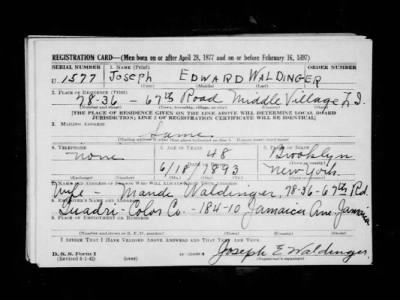 REGISTRATION CARD—(Men born on or after April 28, 1877 and on or before February 16, 1897)
SERIAL NUMBER 1. NAME (Print) ORDER NUMBER
U 1577 JOSEPH EDWARD WALDINGER
(First) (Middle) (Last)
2. PLACE OF RESIDENCE (Print)
78-36 - 67th Road Middle Village L.I.
(Number and street) (Town, township, village, or city) (County) (State)
[THE PLACE OF RESIDENCE GIVEN ON THE LINE ABOVE WILL DETERMINE LOCAL BOARD
JURISDICTION; LINE 2 OF REGISTRATION CERTIFICATE WILL BE IDENTICAL]
3. MAILING ADDRESS
Same
4. TELEPHONE 5. AGE IN YEARS 6. PLACE OF BIRTH
none 48 Brooklyn
DATE OF BIRTH
6/18/1893 New York
7. NAME AND ADDRESS OF PERSON WHO WILL ALWAYS KNOW YOUR ADDRESS
Wife - Maude Waldinger 78-36-67th Rd.
8. EMPLOYER'S NAME AND ADDRESS
Quadri-Color Co. - 184-10 Jamaica Ave Jamaica
9. PLACE OF EMPLOYMENT OR BUSINESS
(Number and street or R. F. D. number) (Town) (County) (State)
I AFFIRM THAT I HAVE VERIFIED ABOVE ANSWERS AND THAT THEY ARE TRUE.
D. S. S. Form 1
(Revised 4-1-42) (over) Joseph E Waldinger
(Registrant's signature)